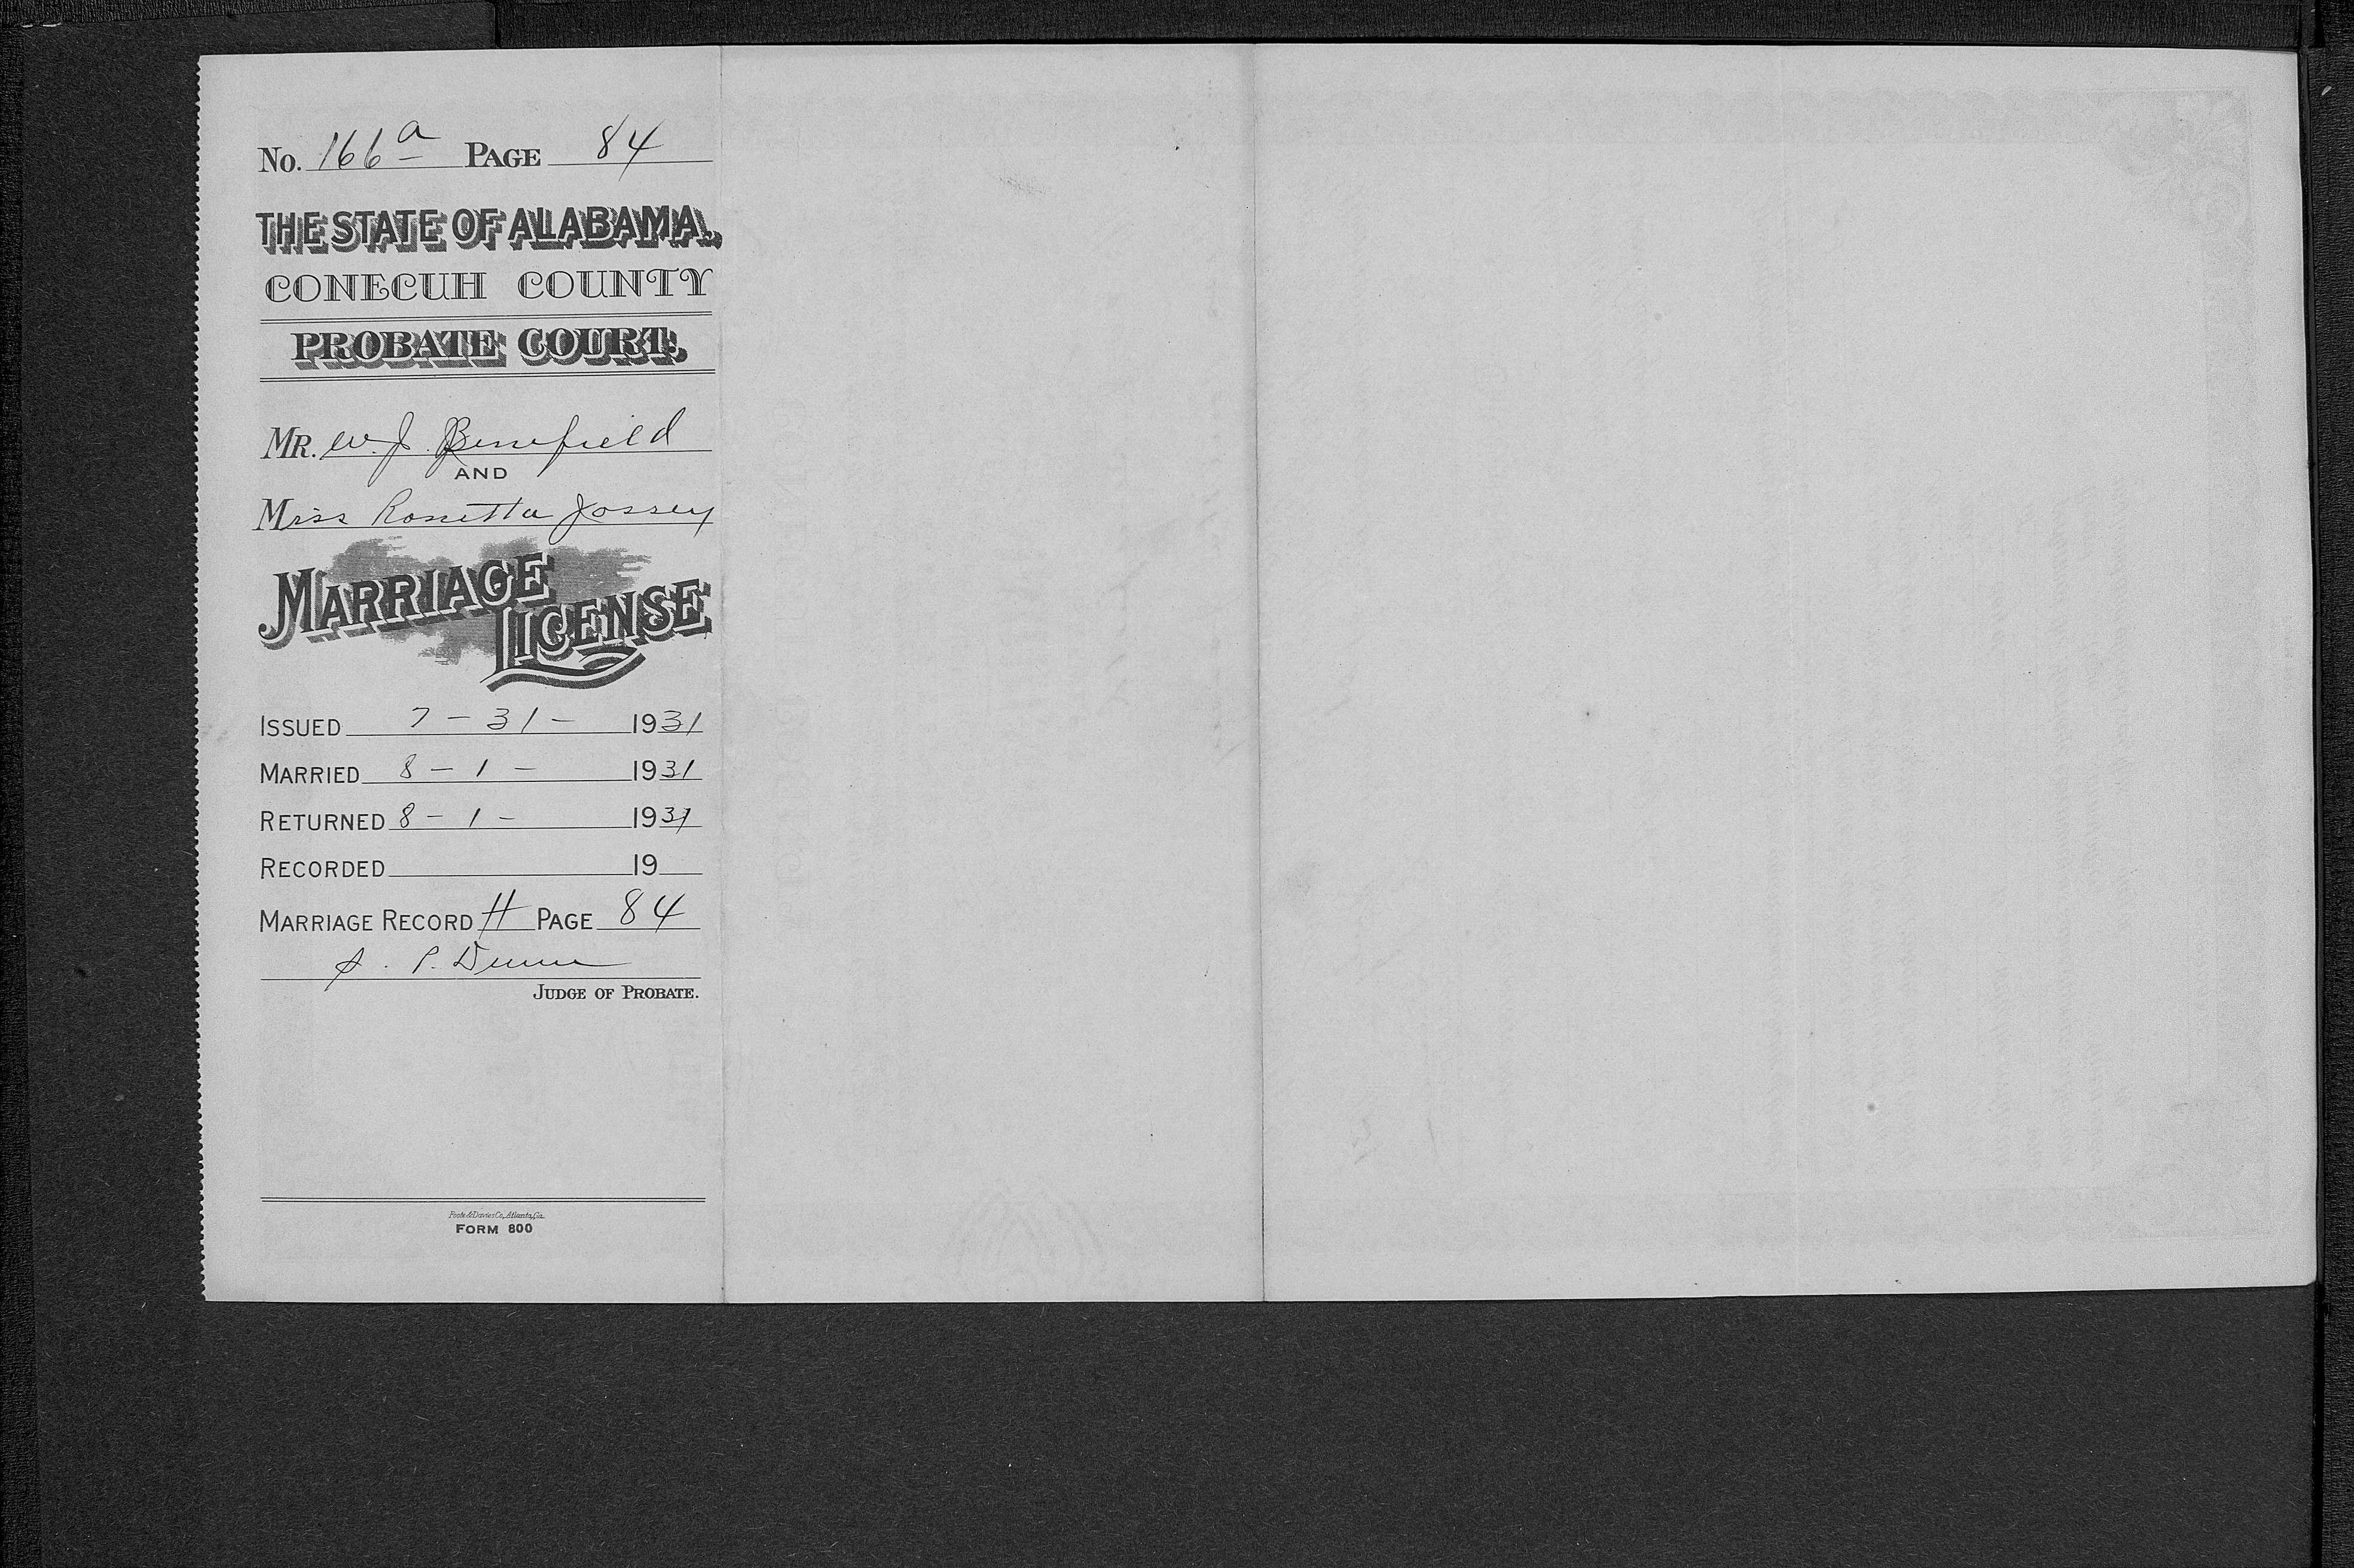 No. 166a Page 84
THE STATE OF ALABAMA,
CONECUH COUNTY
PROBATE COURT.
MR. W. J. Benefield
AND
Miss Rosetta Jossey
MARRIAGE
LICENSE
ISSUED 7-31- 1931
MARRIED 8-1- 1931
RETURNED 8-1- 1931
RECORDED 19
MARRIAGE RECORD H PAGE 84
S. P. Dunn
JUDGE OF PROBATE.
Foote & Davies Co., Atlanta, Ga.
FORM 800